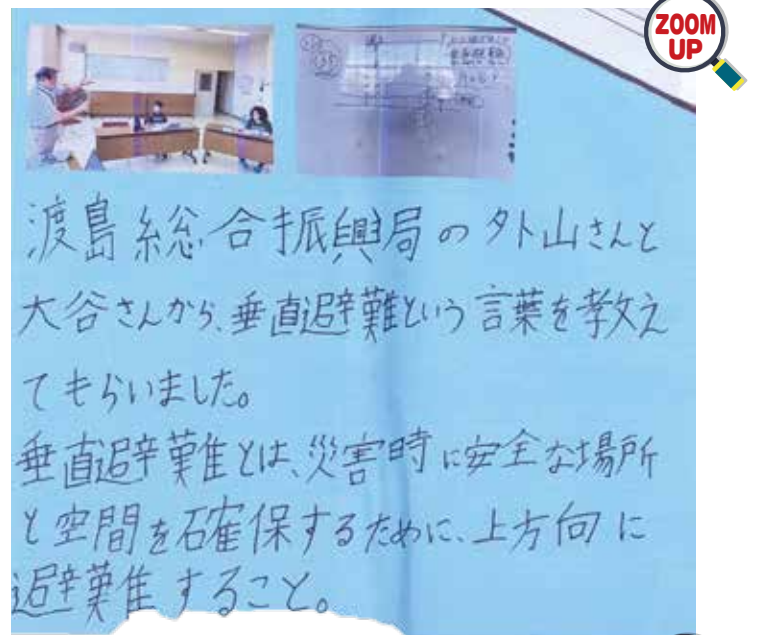 ZOOM
UP
渡島総合振興局の外山さんと
大谷さんから、垂直避難という言葉を教え
てもらいました。
垂直避難とは、災害時に安全な場所
と空間を確保するために、上方向に
避難すること。